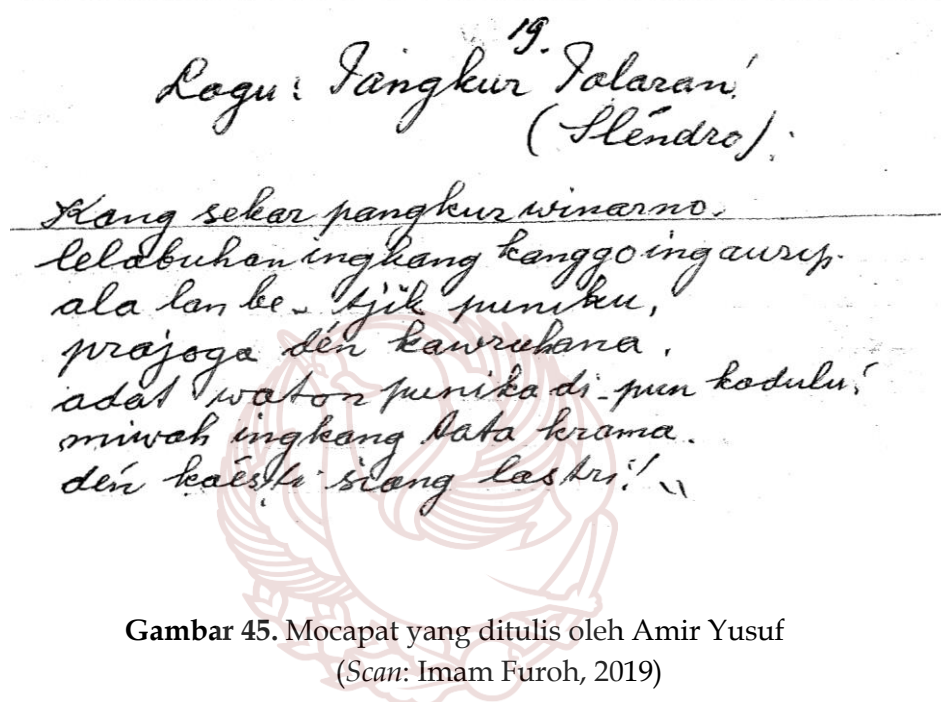 19.
Lagu: Pangkur Palaran!
(Sléndro).
Kang sekar pangkur winarno.
lelabuhan ingkang kanggo ing aurip.
ala lan be-tjik puniku,
prajoga dén kawruhana.
adat waton punika di-pun kadulu!
miwah ingkang tata krama.
dén kaésti siang lastri!
Gambar 45. Mocapat yang ditulis oleh Amir Yusuf
(Scan: Imam Furoh, 2019)